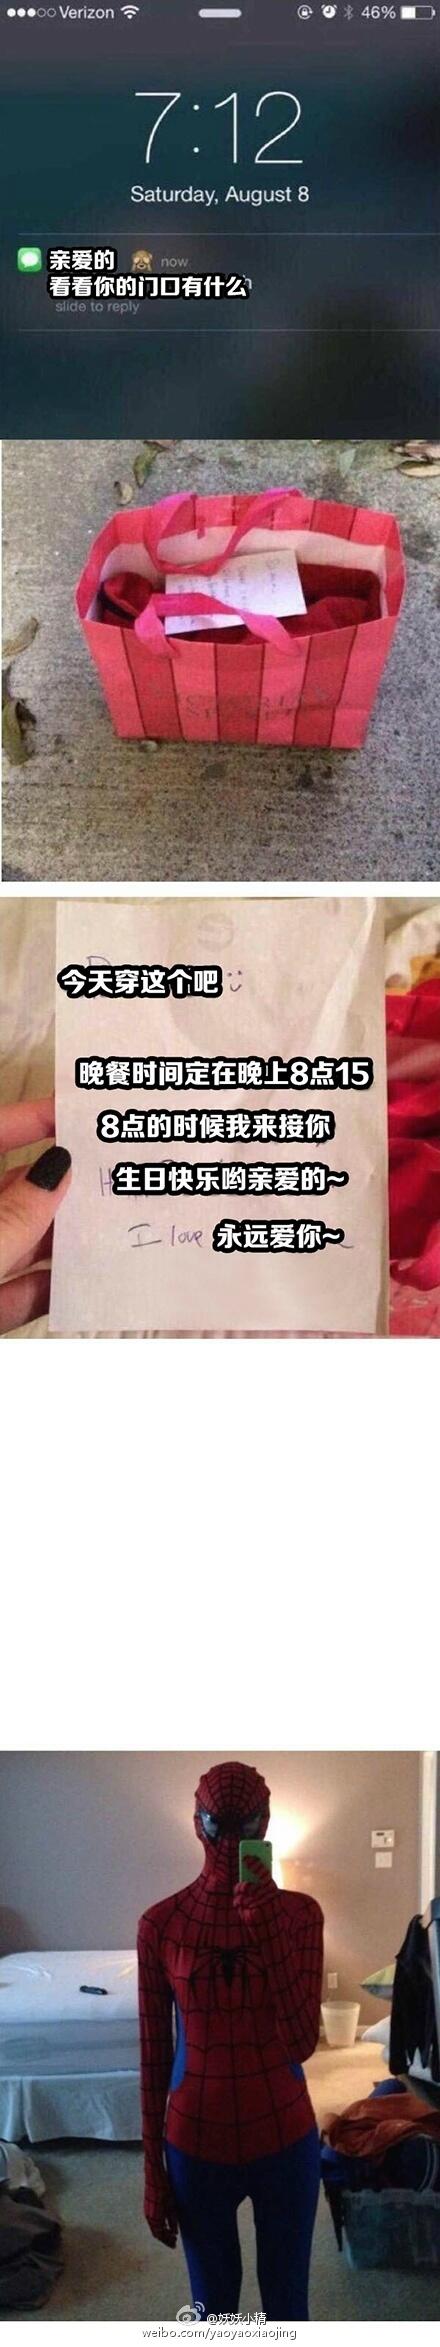 Verizon
46%
7:12
Saturday, August 8
亲爱的 now
看看你的门口有什么
slide to reply
今天穿这个吧
晚餐时间定在晚上8点15
8点的时候我来接你
生日快乐哟亲爱的~
I love 永远爱你~
@妖妖小精
weibo.com/yaoyaoxiaojing